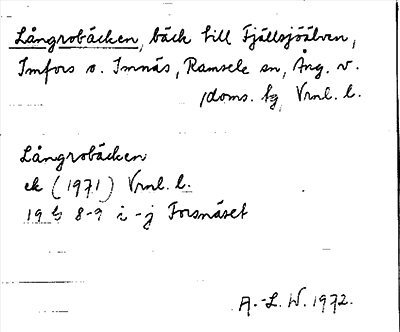 Långrobäcken, bäck till Fjällsjöälven,
Imfors o. Imnäs, Ramsele sn, Ång. v.
doms. fg, Vrnl. l.
Långrobäcken
ek (1971) Vrnl. l.
19 G 8-9 i-j Forsnäset
A.-L. W. 1972.